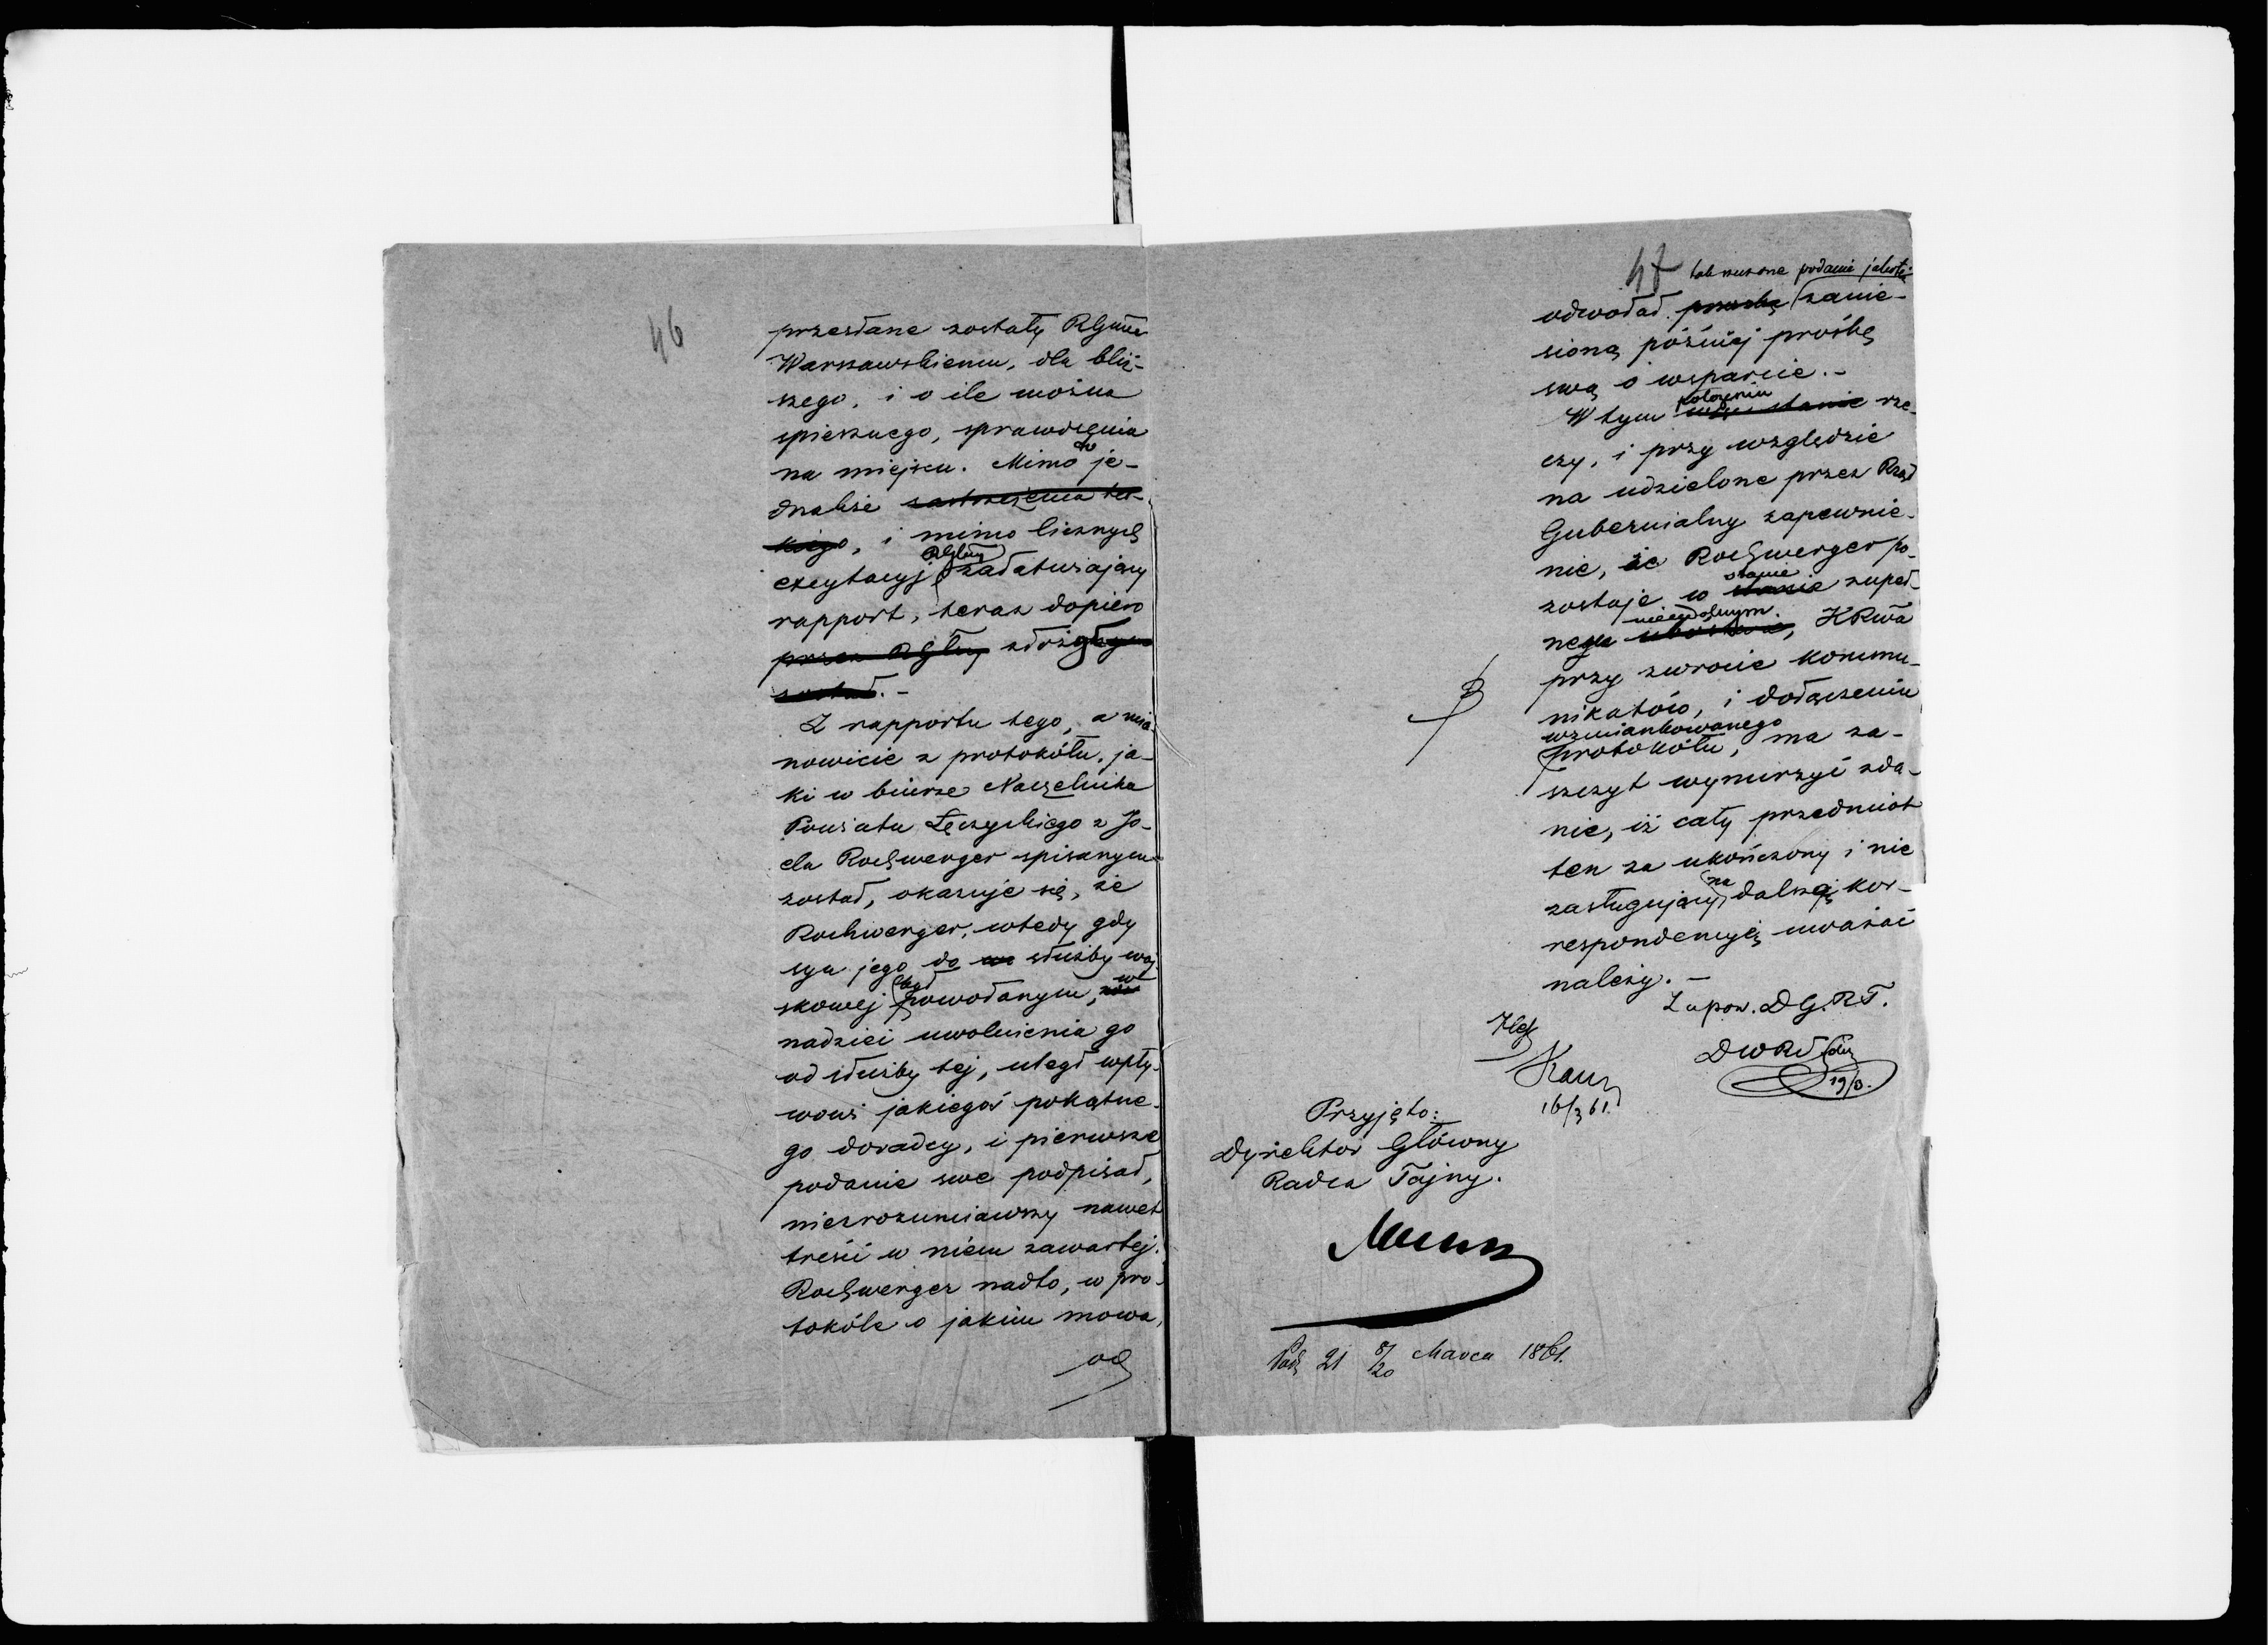 46
przesłane zostały RGmu
Warszawskiemu, dla bliż-
szego, i o ile można
spiesznego, sprawdzenia
na miejscu. Mimo to je-
dnakże zastrzeżenia ta-
kiego, i mimo licznych
excytacyj, RGlny załatwiający
rapport, teraz dopiero
przez RGlny
został.-
Z rapportu tego, a mia-
nowicie z protokółu, ja-
ki w biurze Naczelnika
Powiatu Łęczyckiego z Jo-
ela Rochwerger spisanym
został, okazuje się, że
Rochwerger, wtedy gdy
syn jego do służby woj-
skowej był powołanym, w
nadziei uwolnienia go
od służby tej, uległ wpły-
wowi jakiegoś pokątne-
go doradcy, i pierwsze
podanie swe podpisał,
niezrozumiawszy nawet
treści w niém zawartej.
Rochwerger nadto, w pro-
tokóle o jakim mowa,
od
47 podanie jakoteż
odwołał prośbę zanie-
sioną późniéj prośbę
swą o wsparcie.-
W tym położeniu stanie rze-
czy, i przy względzie
na udzielone przez Rząd
Gubernialny zapewnie-
nie, że Rochwerger po-
zostaje w stanie zupeł-
nego KRwa
przy zwrocie kommu-
nikatów, i dołączeniu
wzmiankowanego
protokółu, ma za-
szczyt wynurzyć zda-
nie, iż cały przedmiot
ten za ukończony i nie
zasługujący na dalszą kor-
respondencyę uważać
należy.-
Z upow. D.G.R.T.
16/3 61.
19/3.
Przyjęto:
Dyrektor Główny
Radca Tajny.
21 8/20 Marca 1861.